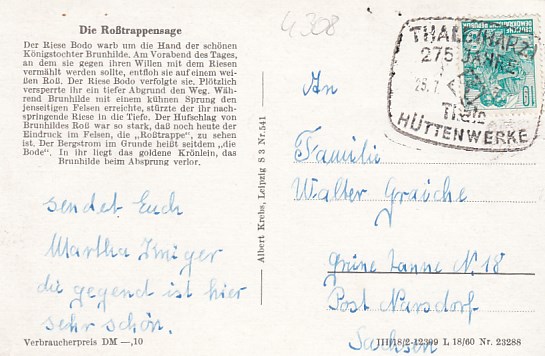 Die Roßtrappensage
Der Riese Bodo warb um die Hand der schönen
Königstochter Brunhilde. Am Vorabend des Tages,
an dem sie gegen ihren Willen mit dem Riesen
vermählt werden sollte, entfloh sie auf einem wei-
ßen Roß. Der Riese Bodo verfolgte sie. Plötzlich
versperrte ihr ein tiefer Abgrund den Weg. Wäh-
rend Brunhilde mit einem kühnen Sprung den
jenseitigen Felsen erreichte, stürzte der ihr nach-
springende Riese in die Tiefe. Der Hufschlag von
Brunhildes Roß war so stark, daß noch heute der
Eindruck im Felsen, die „Roßtrappe", zu sehen
ist. Der Bergstrom im Grunde heißt seitdem „die
Bode". In ihr liegt das goldene Krönlein, das
Brunhilde beim Absprung verlor.
sendet Euch
Martha
die gegend ist hier
sehr schön.
Verbraucherpreis DM —,10
Albert Krebs, Leipzig S 3 Nr. 541
4308
THALE/HARZ 1
275 JAHRE
25.7
Thale
HÜTTENWERKE
10
An
Familie
Walter Graiche
Grüne Tanne N. 18
Post Narsdorf
Sachsen
III/18/2-12399 L 18/60 Nr. 23288